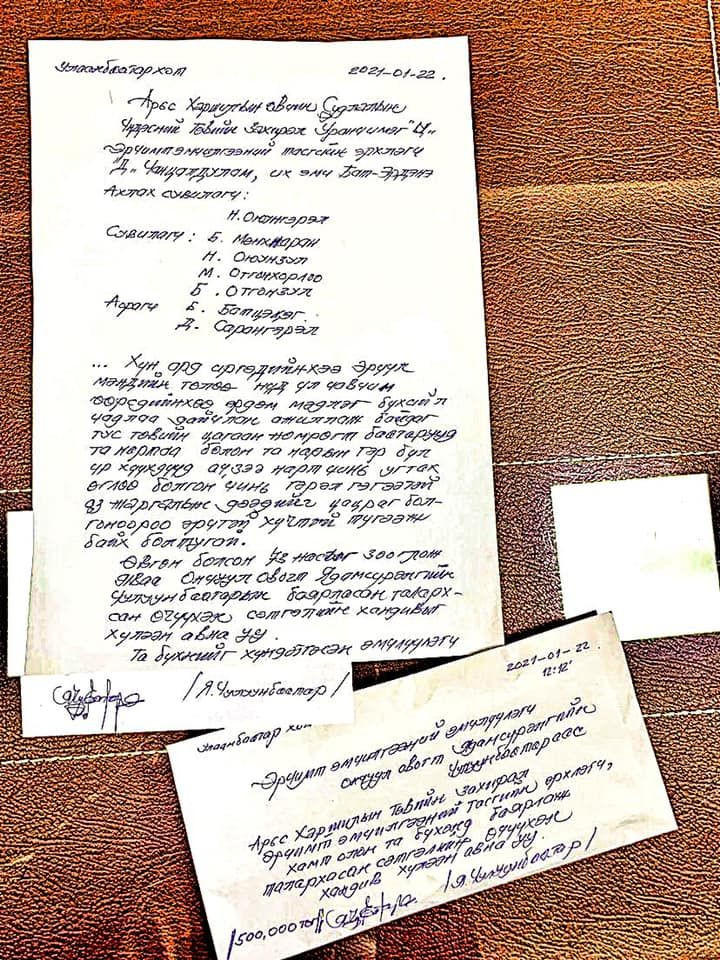 Улаанбаатар хот 2021-01-22.
Арьс Харшлын өвчин Судлалын
Үндэсний Төвийн Захирал Уранчимэг "Ц"
Эрчимт эмчилгээний тасгийн эрхлэгч
"Д" Чанцалдулам, их эмч Бат-Эрдэнэ
Ахлах сувилагч:
Н. Оюунгэрэл
Сувилагч: Б. Мөнхжаргал
Н. Оюунзул
М. Отгонхорлоо
Б. Отгонзул
Асрагч Б. Батцэцэг
Д. Сарангэрэл
... Хүн ард иргэдийнхээ эрүүл
мэндийн төлөө нүд үл цавчим
өөрсдийнхөө эрдэм мэдлэг бүхий л
чадлаа дайчлан ажиллаж байдаг
тус төвийн цагаан нөмрөгт баатарууд
та нартаа болон та нарын гэр бүл
үр хүүхдүүд ачзээ нарт чинь угтах
өглөө болгон чинь гэрэл гэгээтэй
аз жаргалын дээдийг цацраг бол-
гоноороо эрчтэй хүчтэй түгээж
байх болтугай.
Өвгөн болсон 73 насыг зооглож
яваа Ончуул овогт Ядамсүрэнгийн
Чулуунбаатарын баярласан таларх-
сан өчүүхэн сэтгэлийн хандивыг
хүлээн авна уу.
Та бүхнийг хүндэтгэсэн эмчлүүлэгч
/Я. Чулуунбаатар/
2021-01-22
12:12'
Улаанбаатар хот
Эрчимт эмчилгээний эмчлүүлэгч
ончуул овогт Ядамсүрэнгийн
Чулуунбаатараас
Арьс Харшлын Төвийн захирал
Эрчимт эмчилгээний тасгийн эрхлэгч,
хамт олон та бүхэнд баярлаж
талархасан сэтгэлийн өчүүхэн
хандив хүлээн авна уу.
/500,000төг/ /Я. Чулуунбаатар/